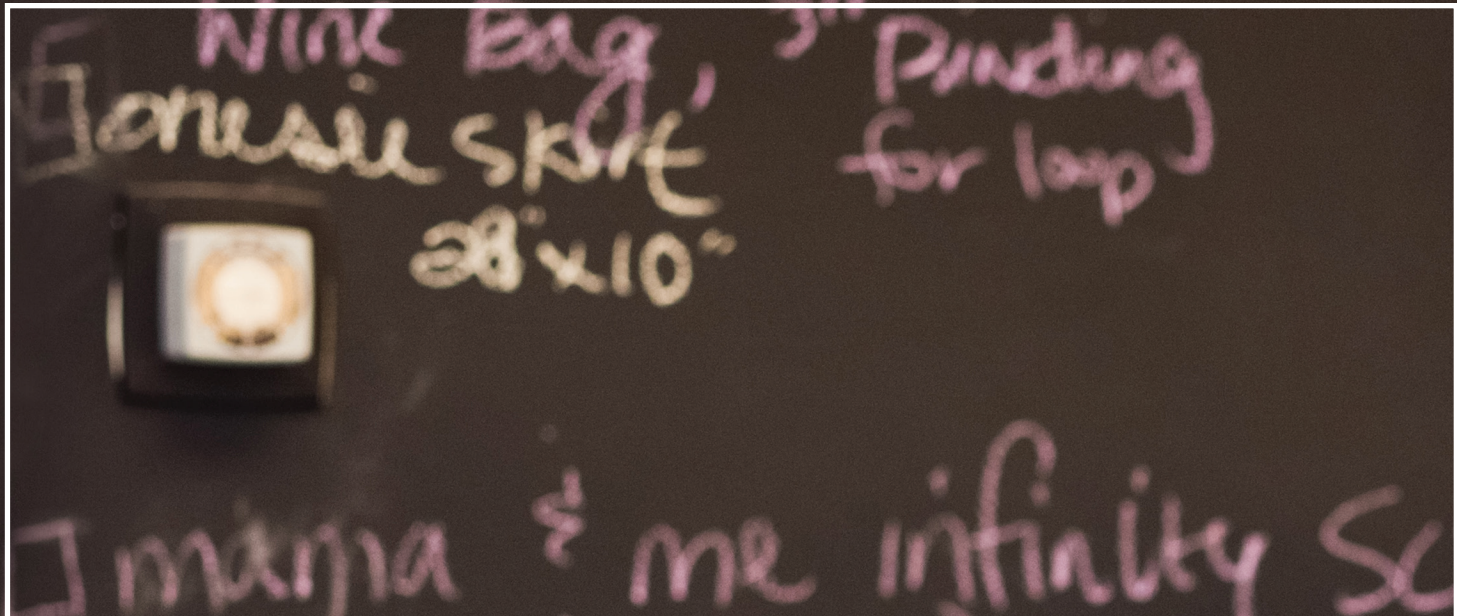 Wine Bag, 3" Binding
for loop
onesie skirt
28" x 10"
mama & me infinity Sc